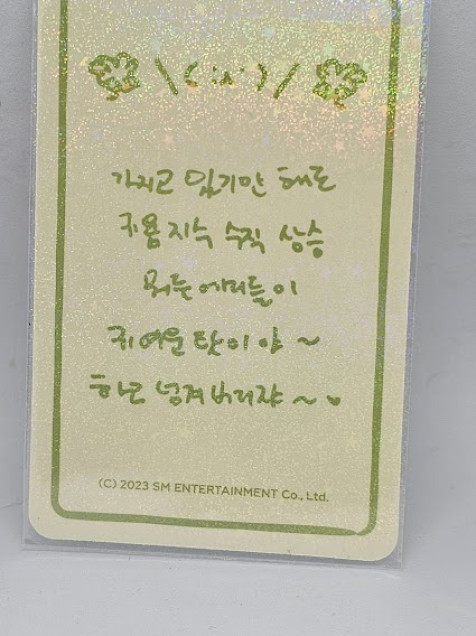 \( 'ㅅ' )/
가지고 있기만 해도
귀욤 지수 수직 상승
뭐든 에리들이
귀여운 탓이야 ~
하고 넘겨버리쟈 ~ ♥
(C) 2023 SM ENTERTAINMENT Co., Ltd.